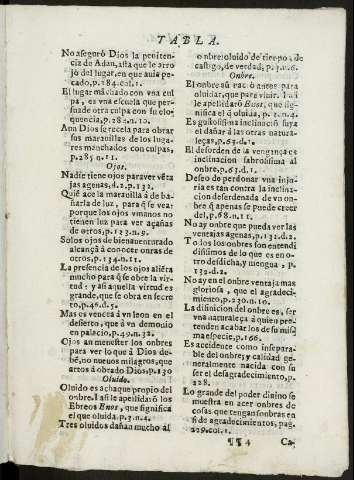 TABLA.
No aseguró Dios la penitencia
de Adan, asta que le arrojó
del lugar, en que auia pecado,
p. 184. col. 1.
El lugar māchado con vna culpa,
es vna escuela que persuade
otra culpa con su eloquencia,
p. 284. n. 10.
Aun Dios se recela para obrar
sus marauillas de los lugares
manchados con culpas,
p. 285 n. 11.
Ojos.
Nadie tiene ojos para ver vētajas
agenas, d. 2. p. 132.
Quié ace la marauilla á de bañarla
de luz, para q̃ se vea:
porque los ojos vmanos no
tienen luz para ver açañas
de otros, p. 123. n. 9.
Solos ojos de bienauenturado
alcançā à conocer onras de
otros, p. 134. n. 11.
La presencia de los ojos aliēta
mucho para q̃ se obre la virtud:
y asi aquella virtud es
grande, que se obra en secreto,
p. 46. d. 5.
Mas es vencer á vn leon en el
desierto, que à vn demonio
en palacio, p. 49. n. 32.
Ojos an menester los onbres
para ver lo que à Dios debē,
no nueuos milagros, que
artos à obrado Dios, p. 130
Oluido.
Oluido es achaque propio del
onbre. I asi le apellidarō los
Ebreos Enos, que significa
el que oluida. p. 3. n. 4.
Tres oluidos dañan mucho al
onbre: oluido de tiēpo, de
castigo, de verdad, p. 3. n. 6.
Onbre.
El onbre su nació antes para
oluidar, que para viuir. I asi
le apellidarō Enos, que significa
el q̃ oluida. p. 3. n. 4.
Es gustosissima inclinació suya
el dañar á las otras naturaleças,
p. 63. d. 1.
El desorden de la vengança es
inclinacion sabrosissima al
onbre, p. 63. d. 1.
Deseo de perdonar vna injuria
es tan contra la inclinacion
desordenada de vn onbre
q̃ apenas se puede creer
del, p. 68. n. 11.
No ay onbre que pueda ver las
ventajas agenas, p. 132. d. 2.
Todos los onbres son entendidissimos
de lo que es en otro
desdicha, y mengua, p.
132. d. 2.
No ay en el onbre ventaja mas
gloriosa, que el agradecimiento,
p. 230. n. 10.
La difinicion del onbre es, ser
vna naturaleça á quien prenden
acabar los de su misma
especie, p. 166.
Es accidente como inseparable
del onbre; y calidad generalmente
nacida con su
ser el desagradecimiento, p.
228.
Lo grande del poder diuino se
muestra en acer onbres de
cosas que tengan sonbras en
si de agradecimientos, pag.
229. col. 1.
¶¶4 Ca-